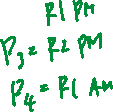 R1 PM
P3 = R2 PM
P4 = R1 AM